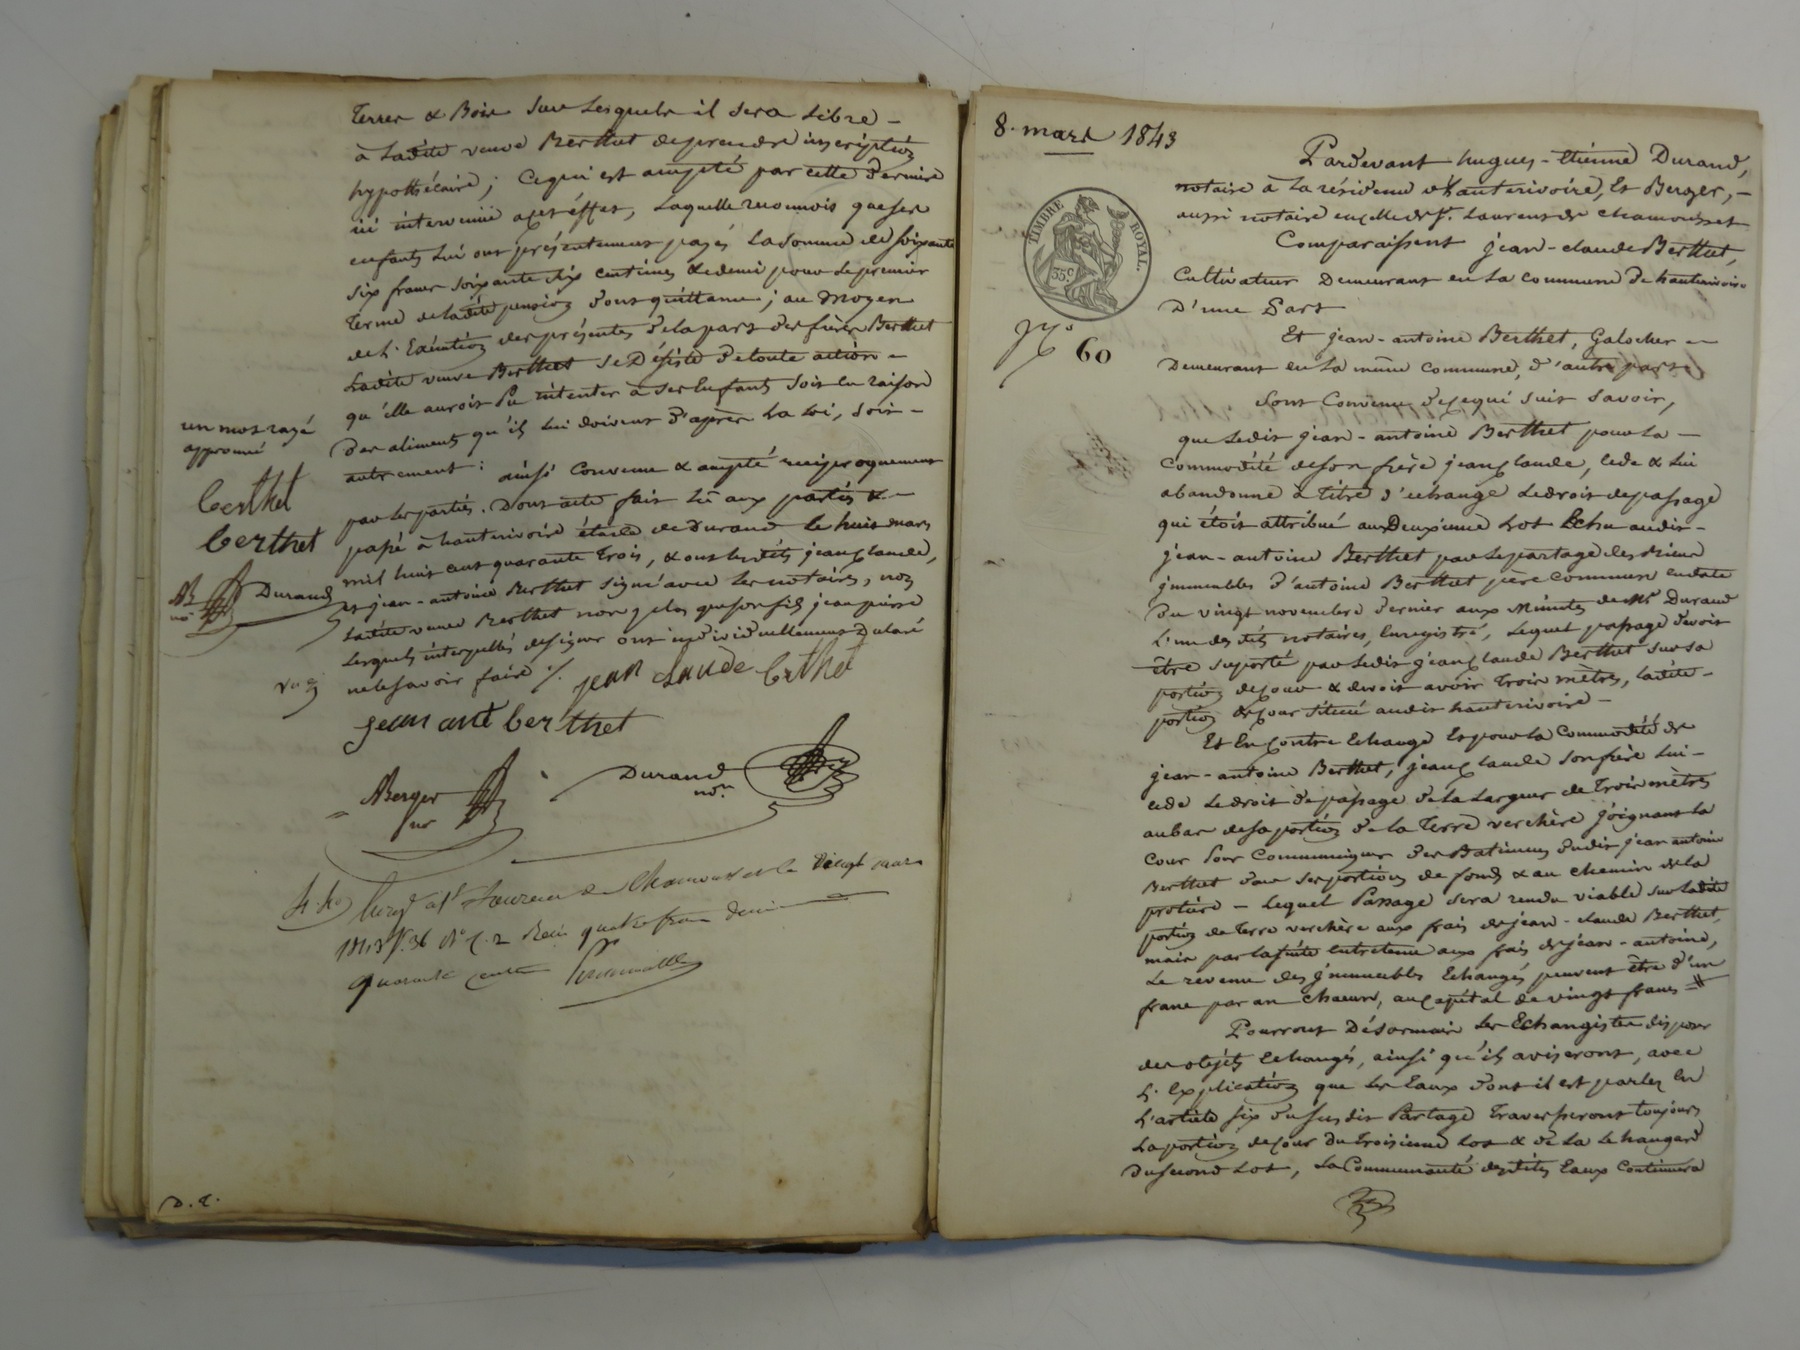 Terres & Bois sur lesquels il sera libre -
à ladite veuve Berthet de prendre inscription
hypothécaire ; ce qui est accepté par cette dernière
ici intervenue à cet effet, laquelle reconnois que ses
enfants lui ont présentement payés la somme de soixante
six francs soixante six centimes & demi pour le premier
terme de ladite pension dont quittance ; au moyen
de l'Exécution des présentes de la part des frères Berthet
ladite veuve Berthet se Désiste de toute action -
qu'elle auroit pu intenter à ses Enfants soit en raison
Des aliments qu'ils lui doivent d'après la loi, soit -
autrement : ainsi convenu & accepté réciproquement
par les parties. Dont acte fait lu aux parties & -
passé à hauterivoire étude de Durand le huit mars
mil huit cent quarante trois, & ont lesdits jean claude,
et jean-antoine Berthet signé avec les notaires, non
ladite veuve Berthet non plus que son fils jean pierre
lesquels interpellés de signer ont individuellement déclaré
ne le savoir faire ·/.
jean claude berthet
jean ant berthet
ABerger
nre
Durand
nore
un mot rayé
approuvé
berthet
berthet
AB
nre
Durand
Enrgé à St Laurent de Chamousset le Vingt mars
1843 f. 36 Ro C. 2 Reçu quatre francs
quarante cent
D. E.
8. mars 1843
TIMBRE ROYAL.
35 c.
No
60
Pardevant hugues-Etienne Durand,
notaire à la résidence d'hauterivoire, Et Berger, -
aussi notaire en celle de St. Laurent de chamousset
Comparaissent jean-claude Berthet,
Cultivateur Demeurant en la commune de hauterivoire
D'une Part
Et jean-antoine Berthet, Galocher -
Demeurant en la même commune, d'autre part
Sont Convenu de ce qui suit savoir,
que ledit jean-antoine Berthet pour la -
commodité de son frère jean claude, cède & lui
abandonne à titre d'echange le droit de passage
qui étoit attribué au Deuxième Lot Echu audit -
jean-antoine Berthet par le partage des mêmes
jmmeubles d'antoine Berthet père commun en date
Du vingt novembre dernier aux Minutes de Me Durand
l'un desdits notaires, Enregistré, lequel passage devoit
être suporté par ledit jean claude Berthet sur sa
portion de cour & devoit avoir trois mètres, ladite -
portion de cour située audit hauterivoire -
Et En contre Echange Et pour la Commodité de
jean-antoine Berthet, jean claude son frère lui -
cède le droit de passage de la largeur de Trois mètres
au bas de sa portion de la Terre verchère joignant la
Cour Pour Communiquer des Batiments dudit jean antoine
Berthet sur ses portions de fonds & au chemin de la
- Lequel Passage sera rendu viable sur ladite
portion de terre verchère aux frais de jean-claude Berthet,
mais par la suite entretenu aux frais de jean-antoine,
Le revenu des jmmeubles Echangés peuvent être d'un
franc par an chacun, au capital de vingt francs =
Pourront Désormais les Echangistes disposer
des objets Echangés, ainsi qu'ils aviseront, avec
l'explication que les Eaux dont il est parlez En
l'article six du susdit Partage Traverseront toujours
la portion de cour du troisième Lot & de là le hangard
Du second Lot, la Communauté desdites Eaux continuera